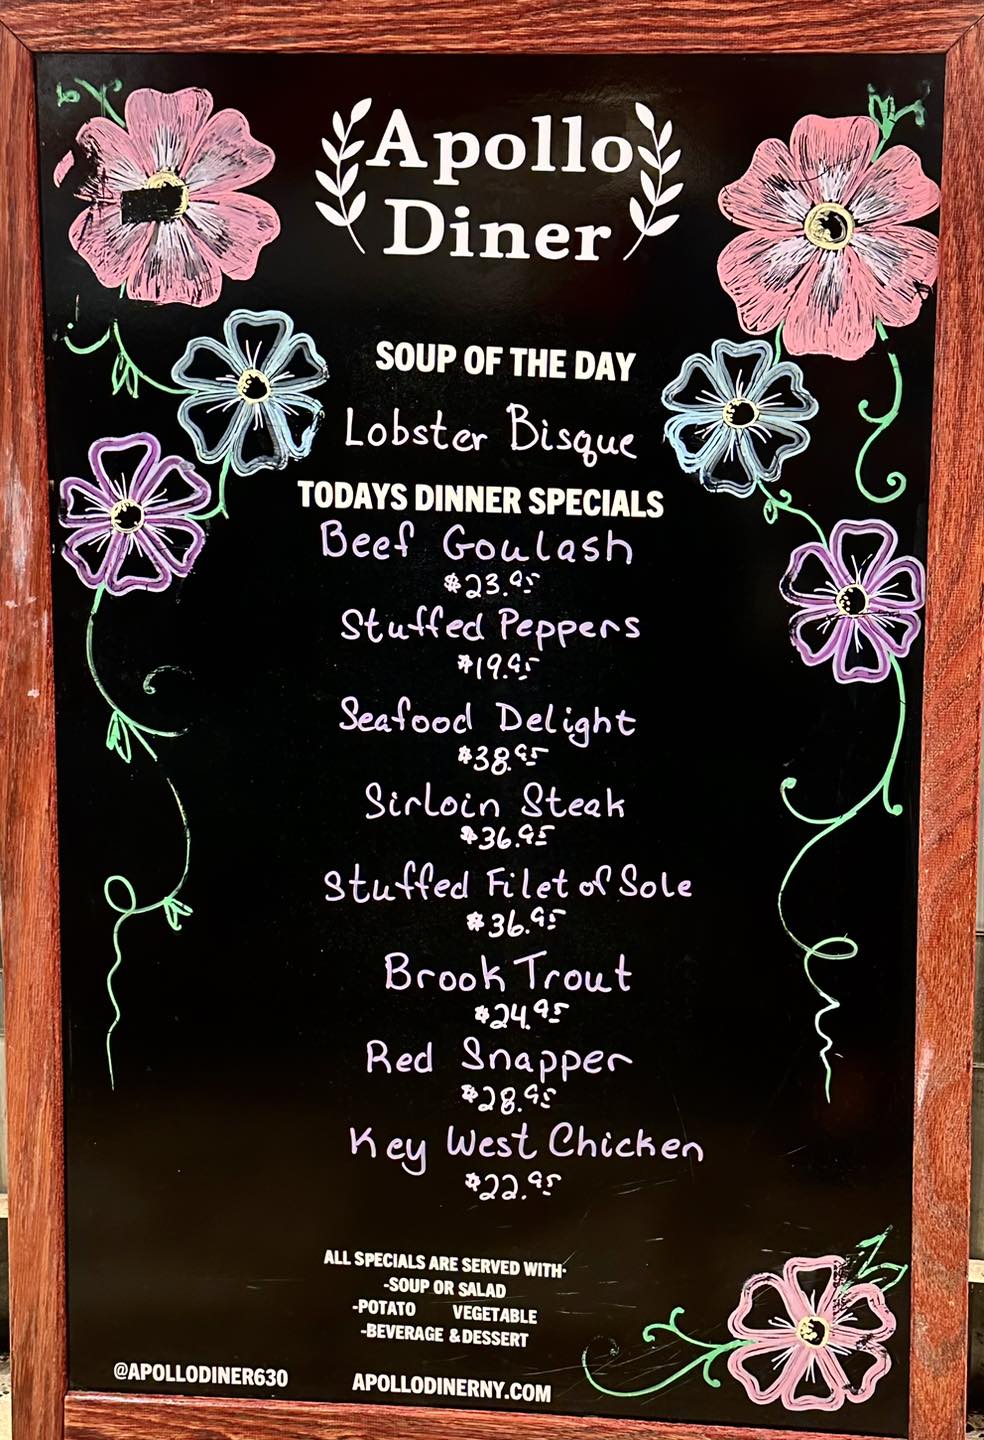 Apollo
Diner
SOUP OF THE DAY
Lobster Bisque
TODAYS DINNER SPECIALS
Beef Goulash
$23.95
Stuffed Peppers
$19.95
Seafood Delight
$38.95
Sirloin Steak
$36.95
Stuffed Filet of Sole
$36.95
Brook Trout
$24.95
Red Snapper
$28.95
Key West Chicken
$22.95
ALL SPECIALS ARE SERVED WITH-
-SOUP OR SALAD
-POTATO VEGETABLE
-BEVERAGE & DESSERT
@APOLLODINER630
APOLLODINERNY.COM